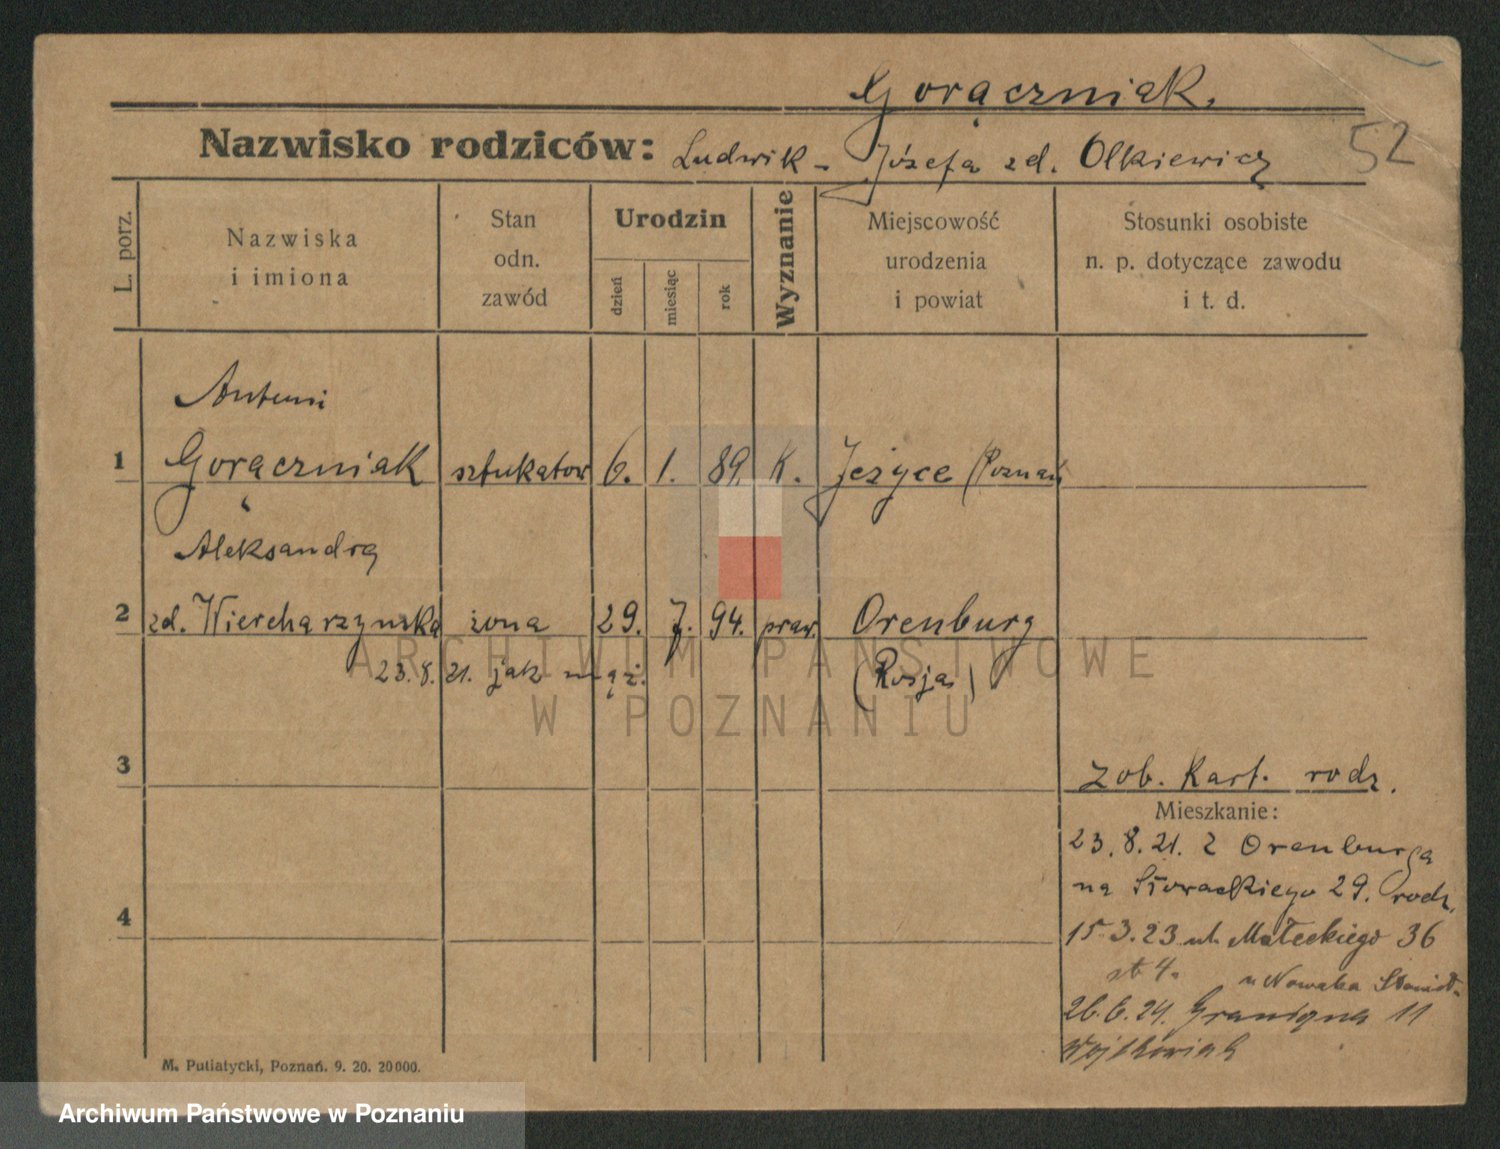 Gorączniak.
Nazwisko rodziców: Ludwik - Józefa zd. Olkiewicz
52
L. porz.
Nazwiska
i imiona
Stan
odn.
zawód
Urodzin
dzień
miesiąc
rok
Wyznanie
Miejscowość
urodzenia
i powiat
Stosunki osobiste
n. p. dotyczące zawodu
i t. d.
Antoni
1 Gorączniak sztukator 6. 1. 89. K. Jeżyce (Poznań
Aleksandra
2 zd. Wiercharzynska żona 29. 7. 94. praw. Orenburg
23.8.21. jak mąż. (Rosja)
ARCHIWUM PAŃSTWOWE
W POZNANIU
3
zob. Kart. rodz.
Mieszkanie:
23.8.21. z Orenburga
na Słowackiego 29. rodz.
4
15.3.23 ul. Małeckiego 36
u Nowaka
26.6.24. Graniczna 11
Wojtkowiak
M. Putiatycki, Poznań. 9. 20. 20000.
Archiwum Państwowe w Poznaniu